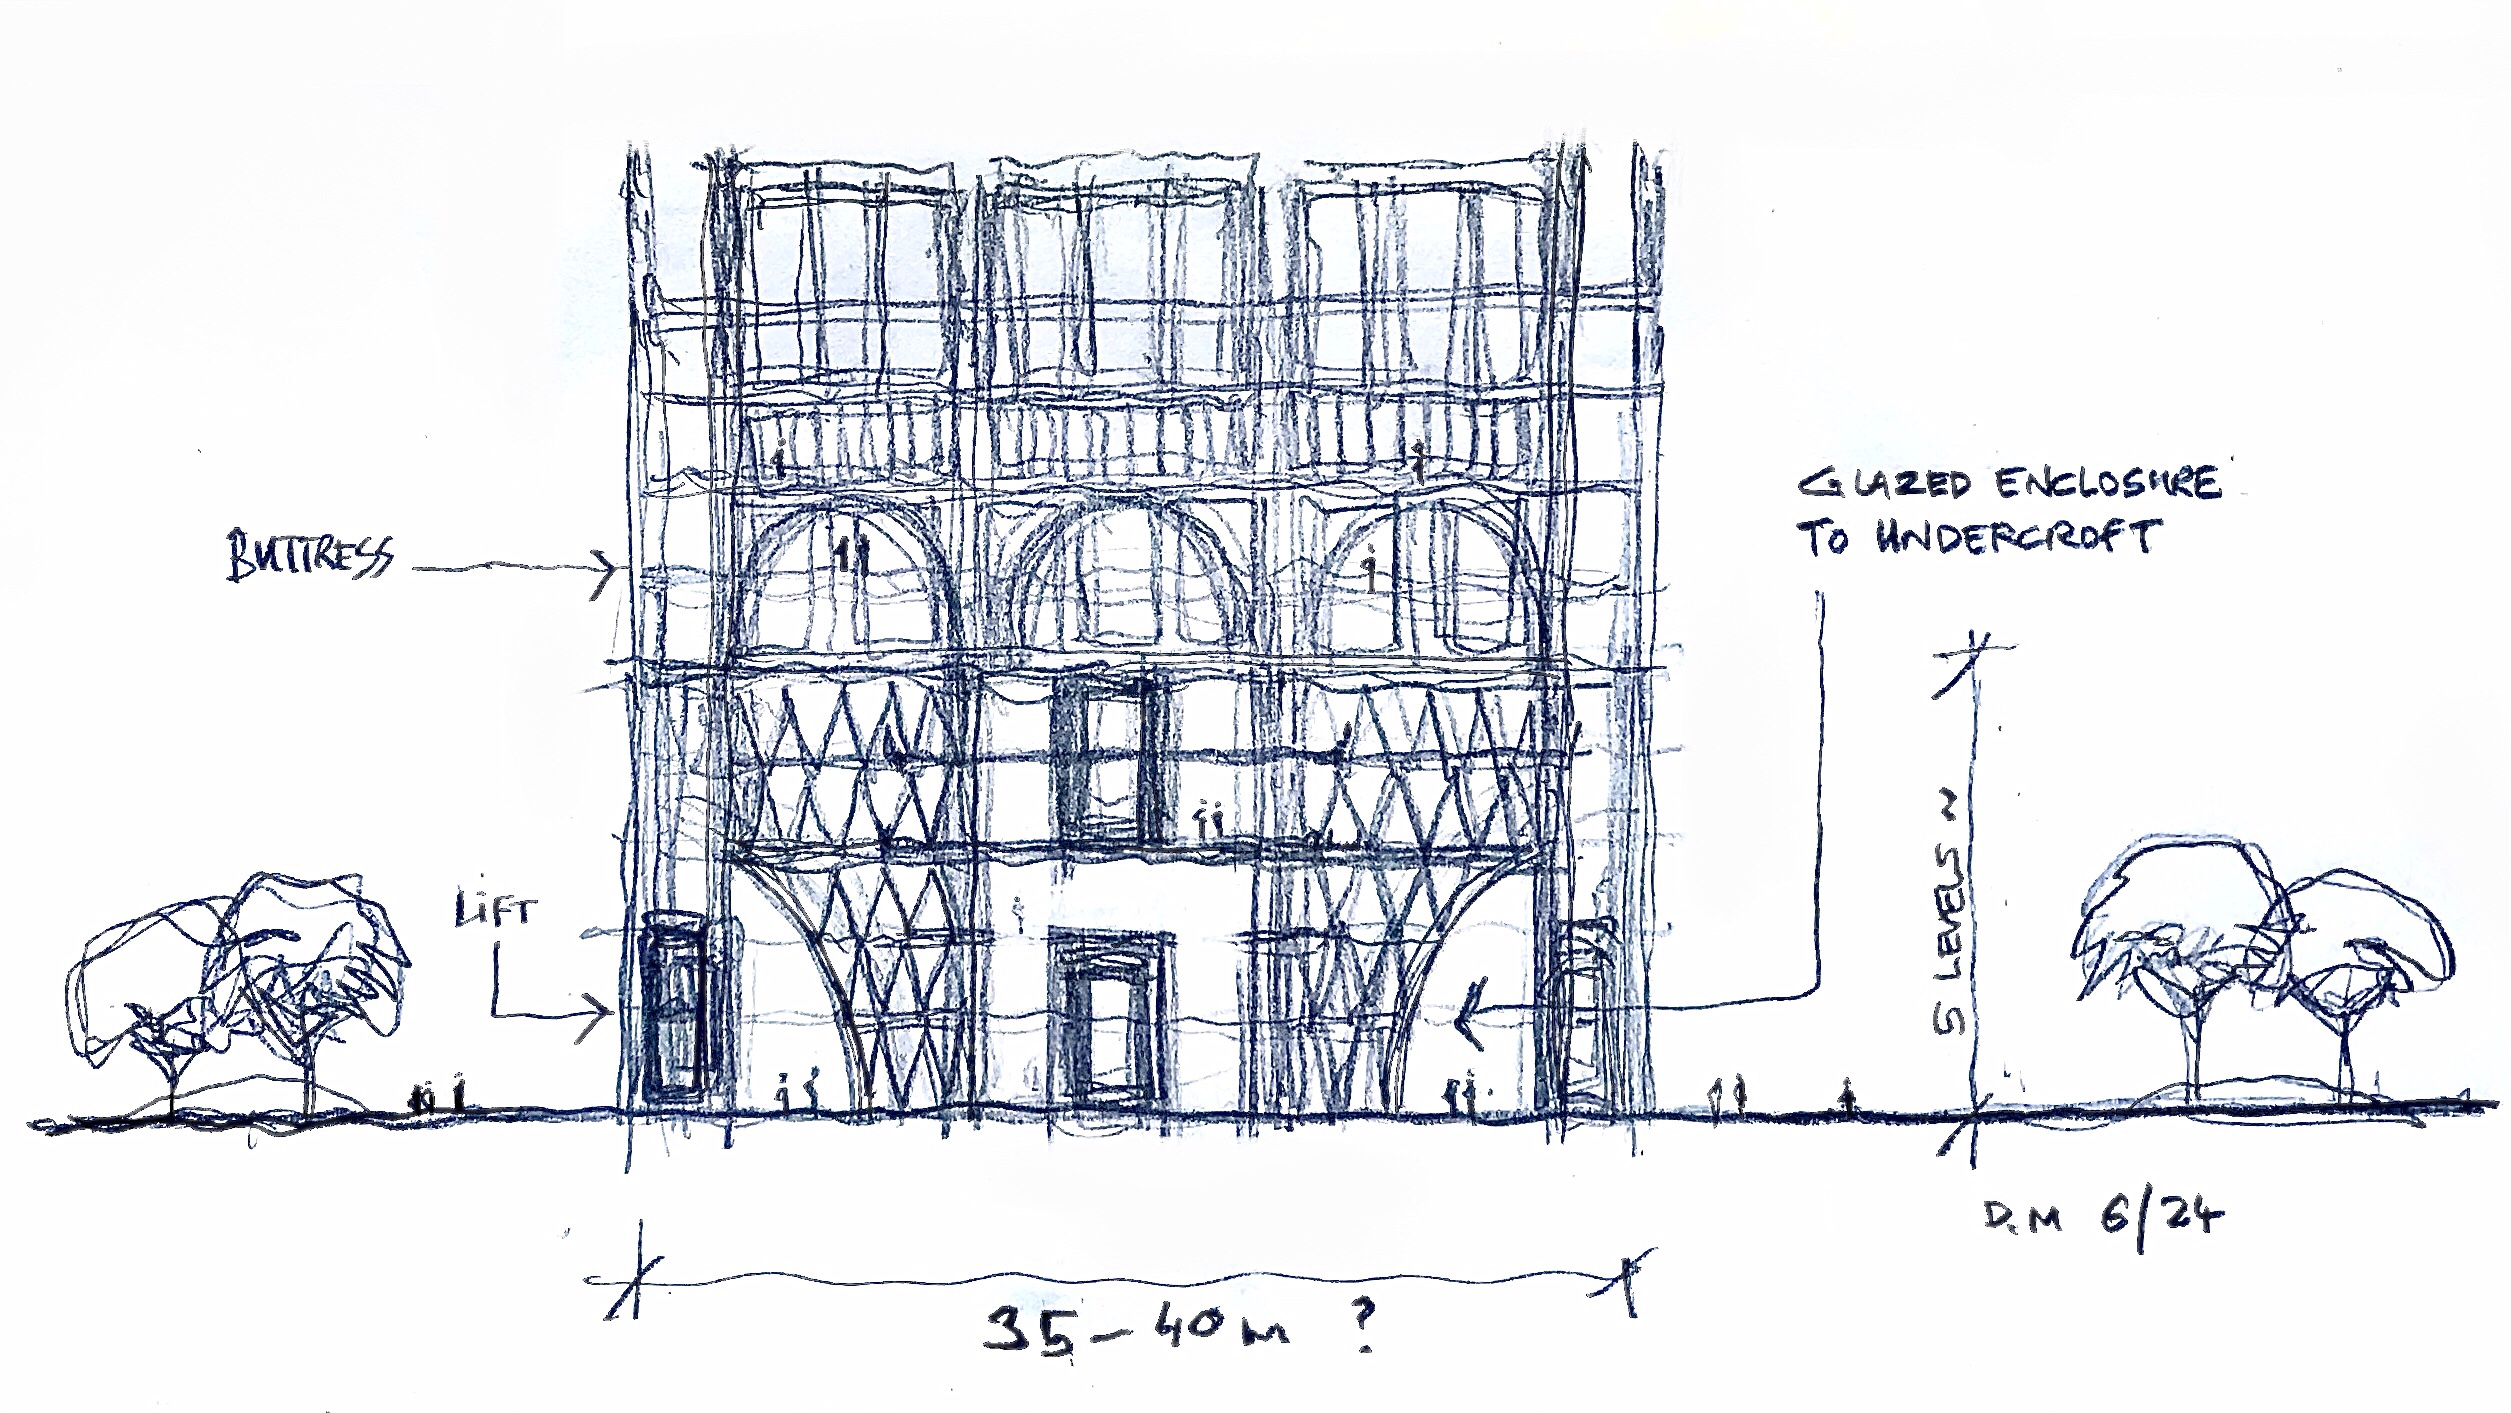 BUTTRESS
GLAZED ENCLOSURE
TO UNDERCROFT
LIFT
5 LEVELS ~
D.M 6/24
35-40m ?